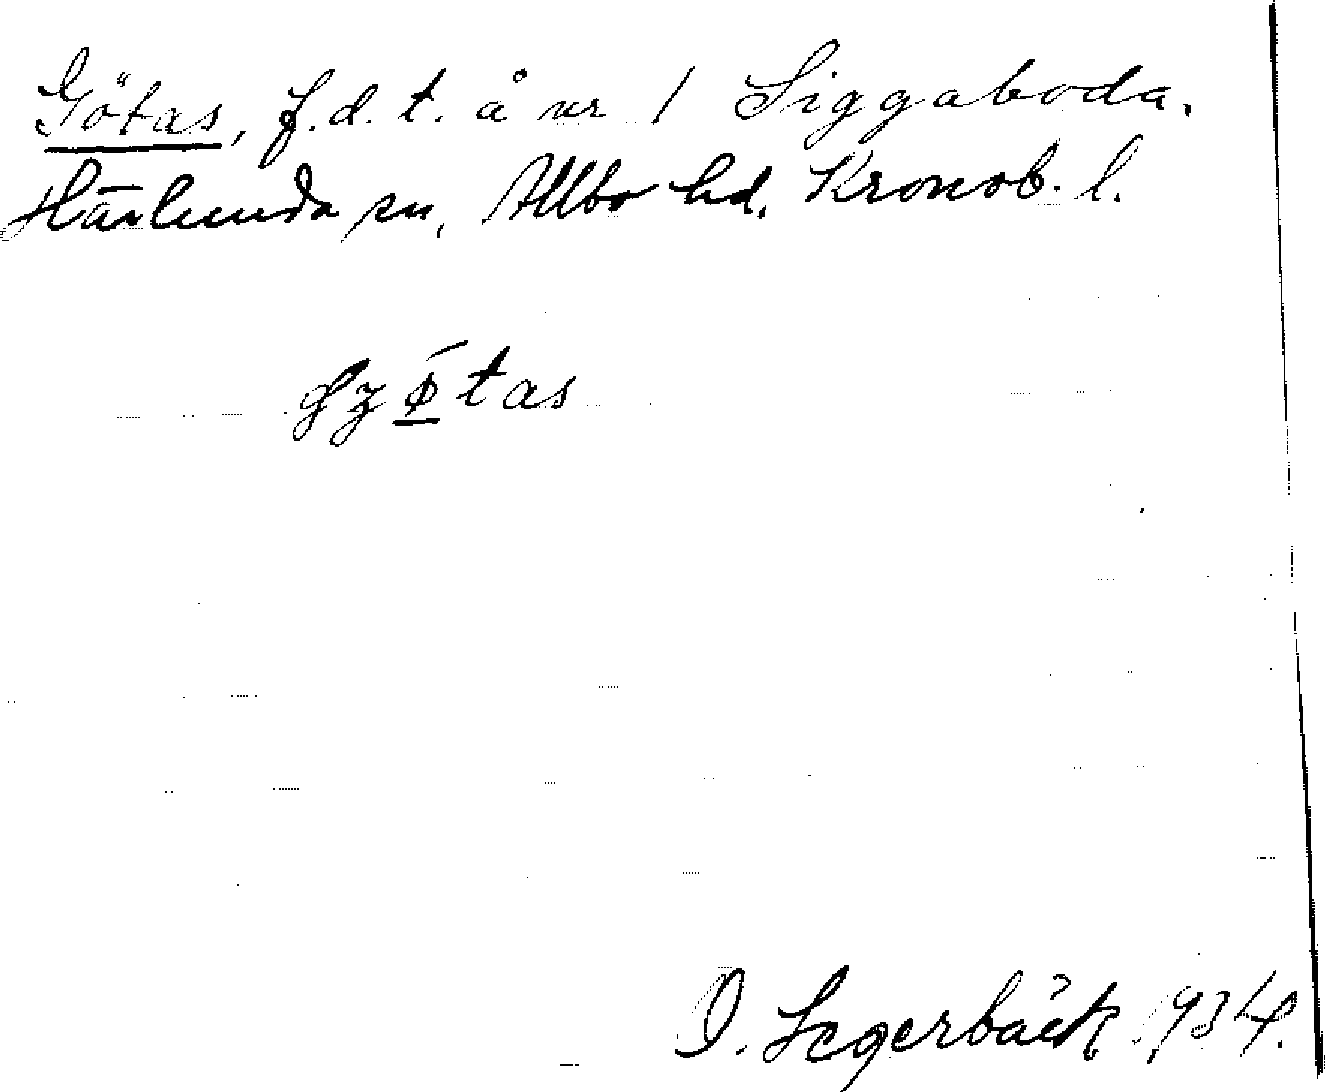 Götas, f.d. t. å nr 1 Siggaboda.
Härlunda sn, Allbo hd, Kronob. l.
O. Segerbäck 1934.